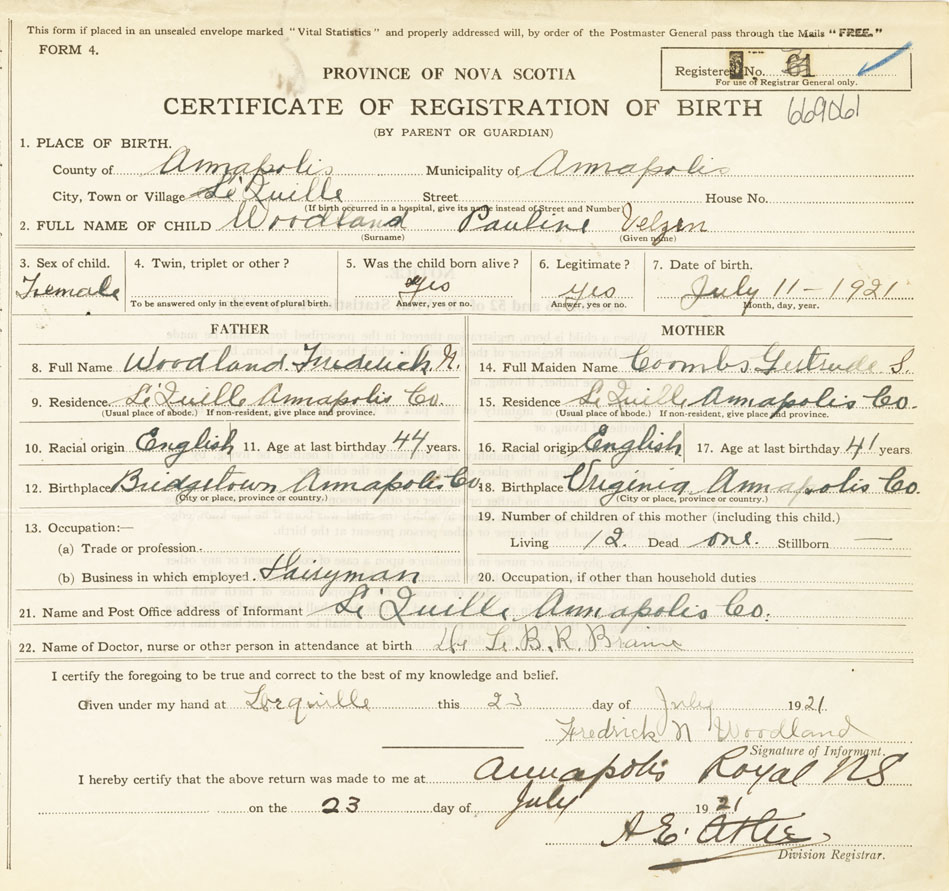 This form if placed in an unsealed envelope marked "Vital Statistics" and properly addressed will, by order of the Postmaster General pass through the Mails "FREE."
FORM 4.
PROVINCE OF NOVA SCOTIA
Registered No. 61
For use of Registrar General only.
CERTIFICATE OF REGISTRATION OF BIRTH 669061
(BY PARENT OR GUARDIAN)
1. PLACE OF BIRTH.
County of Annapolis Municipality of Annapolis
City, Town or Village Le'Quille Street House No.
(If birth occurred in a hospital, give its name instead of Street and Number)
2. FULL NAME OF CHILD Woodland Pauline Velzen
(Surname) (Given name)
3. Sex of child. 4. Twin, triplet or other? 5. Was the child born alive? 6. Legitimate? 7. Date of birth.
Female yes yes July 11 - 1921
To be answered only in the event of plural birth. Answer, yes or no. Answer, yes or no. Month, day, year.
FATHER MOTHER
8. Full Name Woodland Frederick N. 14. Full Maiden Name Coombs Gertrude S.
9. Residence. Le'Quille Annapolis Co 15. Residence Le Quille Annapolis Co.
(Usual place of abode.) If non-resident, give place and province. (Usual place of abode.) If non-resident, give place and province.
10. Racial origin English 11. Age at last birthday 44 years. 16. Racial origin English 17. Age at last birthday 41 years.
12. Birthplace Bridgetown Annapolis Co. 18. Birthplace Virginia Annapolis Co.
(City or place, province or country.) (City or place, province or country.)
13. Occupation:— 19. Number of children of this mother (including this child.)
(a) Trade or profession. Living 12. Dead one. Stillborn —
(b) Business in which employed. Dairyman 20. Occupation, if other than household duties
21. Name and Post Office address of Informant Le'Quille Annapolis Co.
22. Name of Doctor, nurse or other person in attendance at birth B. R. Braine
I certify the foregoing to be true and correct to the best of my knowledge and belief.
Given under my hand at Lequille this 23 day of July 1921.
Fredrick N Woodland
Signature of Informant.
I hereby certify that the above return was made to me at Annapolis Royal NS
on the 23 day of July 1921
A E
Division Registrar.